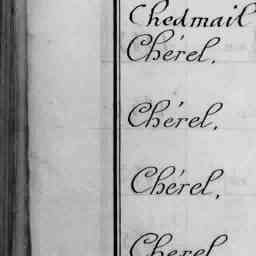 Chedmail
Chérel,
Chérel,
Chérel,
Cherel